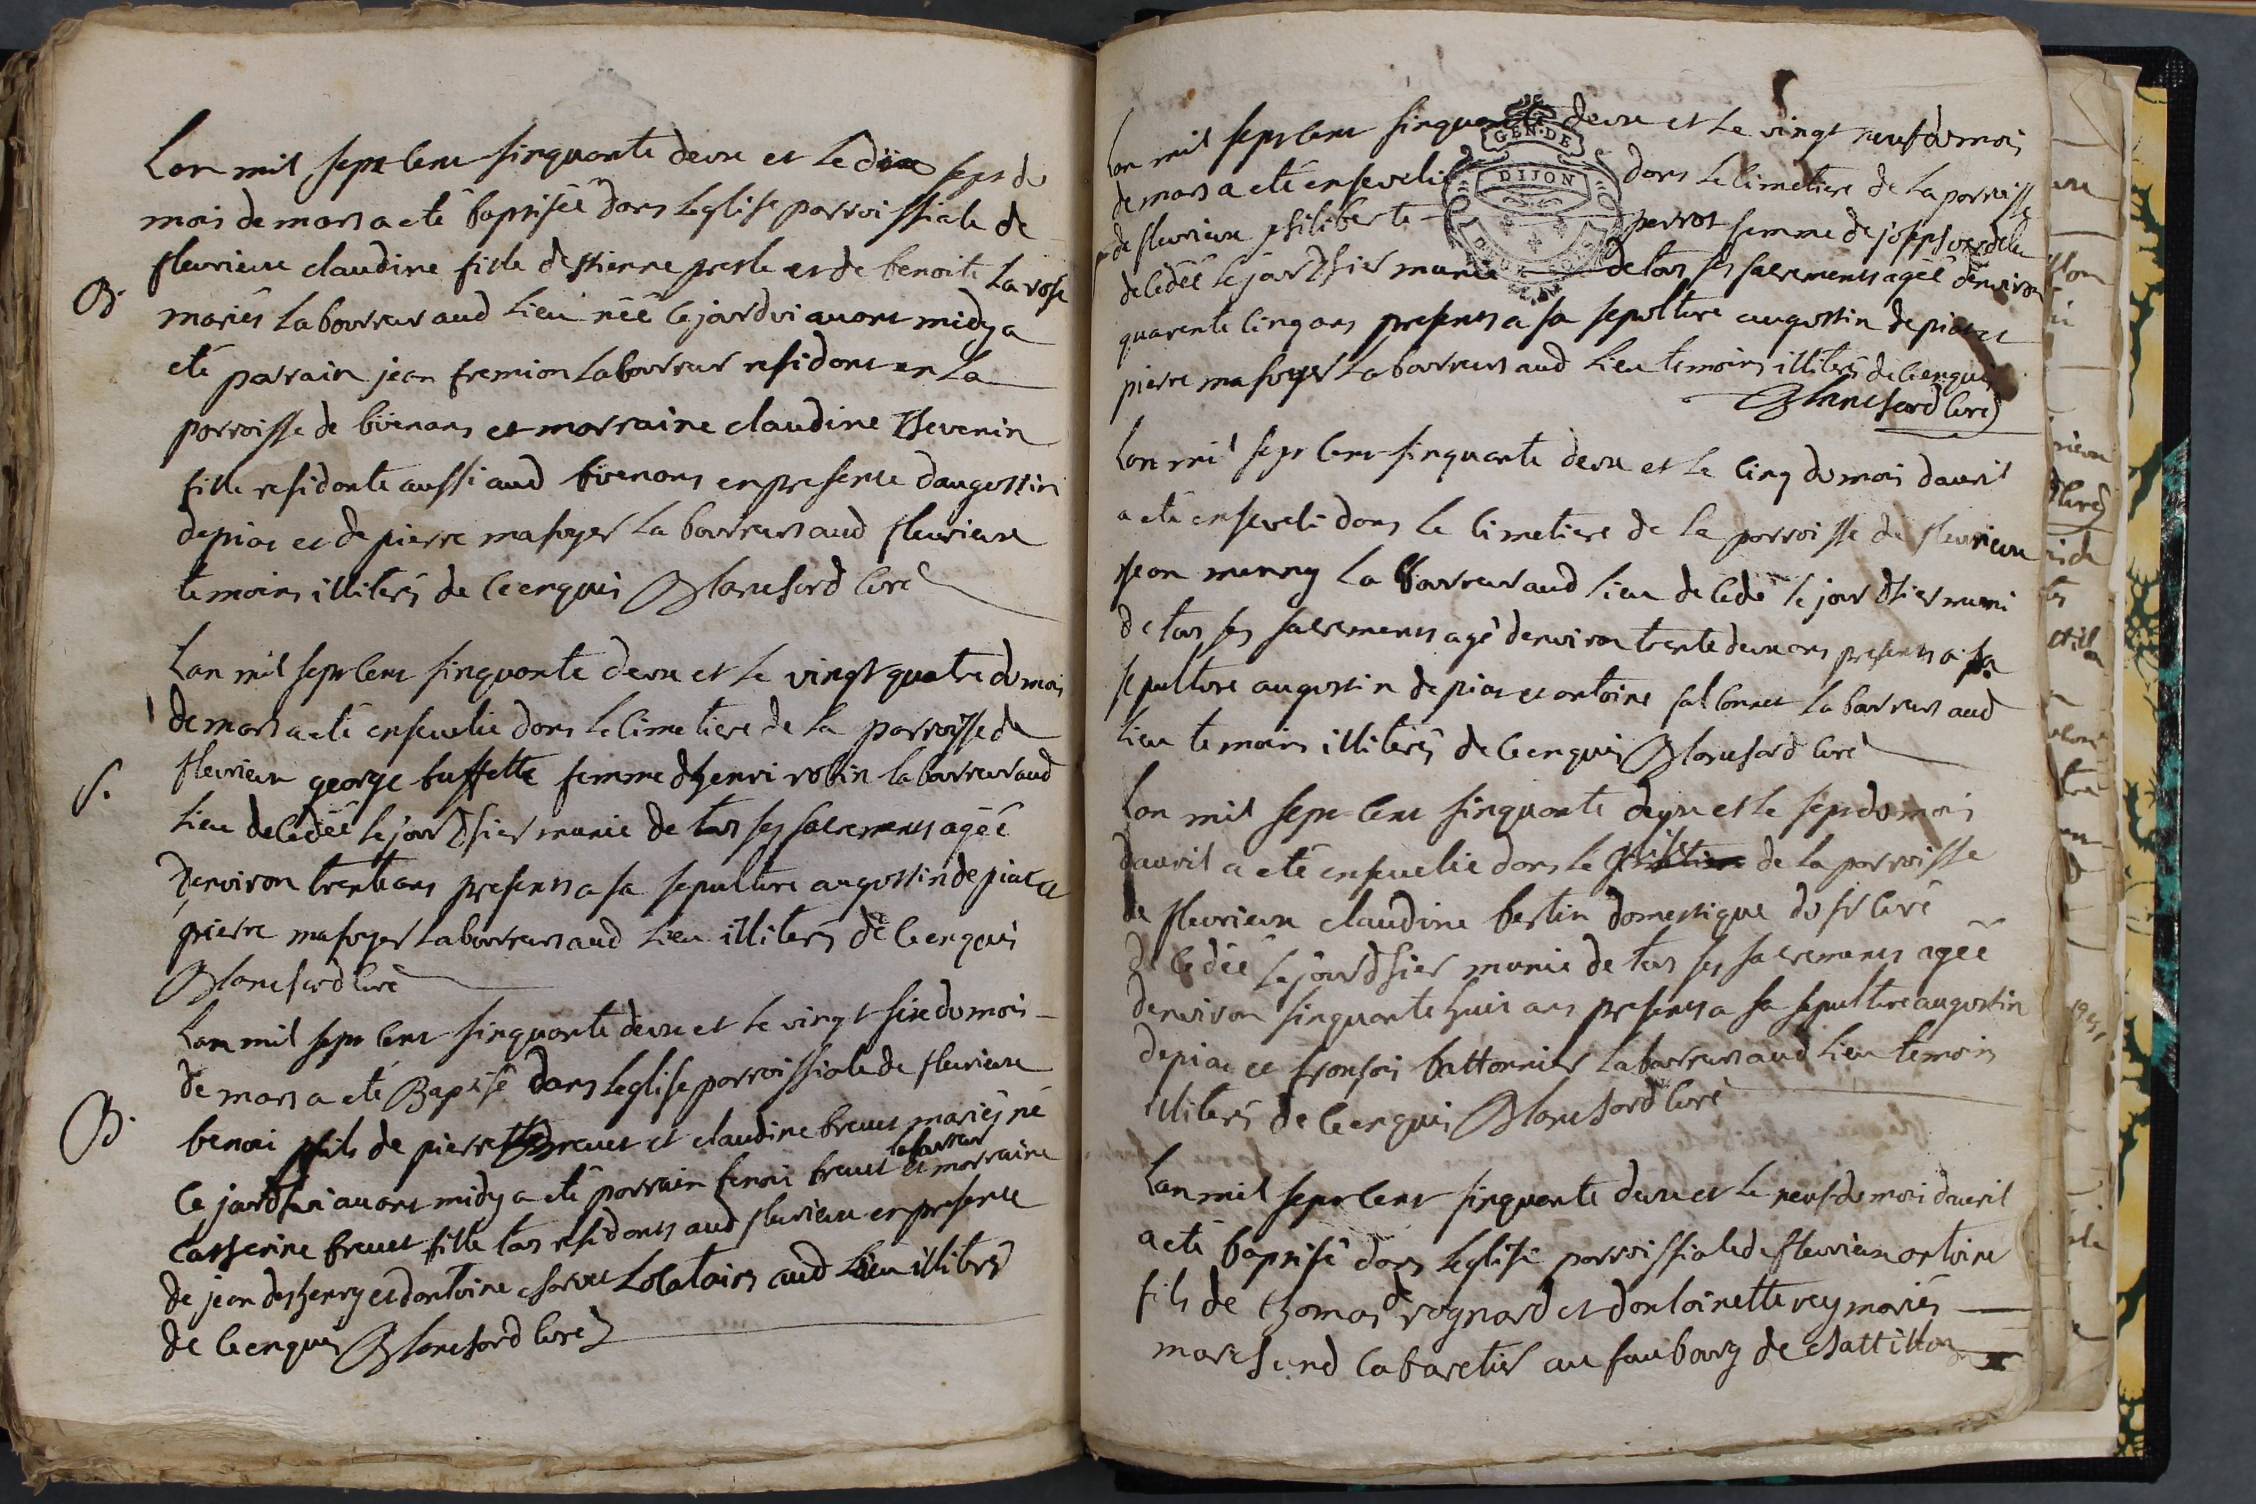 Lan mil sept cent sinquante deux et le dix sept du
mois de mars a eté baptisée dans leglise parroissiale de
fleurieux claudine fille destienne presle et de benoite la rose
B.
mariés laboureur aud lieu néé ce jourdui avant midy a
eté parain jean fremion laboureur residant en la
parroisse de bivenans et marraine claudine thevenin
fille residante aussi aud bivenans en presence daugustin
depiat et de pierre masoyer laboureurs aud fleurieux
temoins illiterés de ce enquis Blanchard curé
Lan mil sept cent sinquante deux et le vingt quatre du mois
de mars a eté ensevelie dans le cimetiere de la parroisse de
S.
fleurieux george buffette femme dhenri robin laboureur aud
lieu decedéé le jour dhier munie de tous ses sacrements agéé
denviron trente ans presents a sa sepulture augustin depiat et
pierre masoyer laboureurs aud lieu illiterés de ce enquis
Blanchard curé
Lan mil sept cent sinquante deux et le vingt sixe du mois
de mars a eté Baptisé dans leglise parroissiale de fleurieux
B.
benoi fils de pierre brevet et claudine brevet mariés né
laboureur
ce jourdhui avant midy a eté parrain benoi brevet et marraine
catherine brevet fille tous residants aud fleurieux en presence
de jean deshenry et dantoine charvet locataires aud lieu illiterés
de ce enquis Blanchard curé
Lan mil sept cent sinquante deux et le vingt neuf du mois
GEN. DE
DIJON
de mars a eté enseveli dans le cimetiere de la parroisse
de fleurieux philiberte perrot femme de joseph
decedéé le jour dhier munie de tous ses sacrements agéé denviron
quarente cinq ans presents a sa sepulture augustin depiat et
pierre masoyer laboureurs aud lieu temoins illiterés de ce enquis
Blanchard curé
Lan mil sept cent sinquante deux et le cinq du mois davril
a eté enseveli dans le cimetiere de la parroisse de fleurieux
jean munny laboureur aud lieu decedé le jour dhier muni
de tous ses sacrements agé denviron trente deux ans presents a sa
sepulture augustin depiat et antoine laboureurs aud
lieu temoins illiterés de ce enquis Blanchard curé
Lan mil sept cent sinquante deux et le sept du mois
davril a eté ensevelie dans le de la parroisse
de fleurieux claudine bertin domestique du sr curé
decedéé le jour dhier munie de tous ses sacrements agéé
denviron sinquante huit ans presents a sa sepulture augustin
depiat et fransois battonnier laboureurs aud lieu temoins
illiterés de ce enquis Blanchard curé
Lan mil sept cent sinquante deux et le neuf du mois davril
a eté baptisé dans leglise parroissiale de fleurieux antoine
fils de thomas rognard et dantoinette rey mariés
marchand cabaretier au faubourg de chattillon